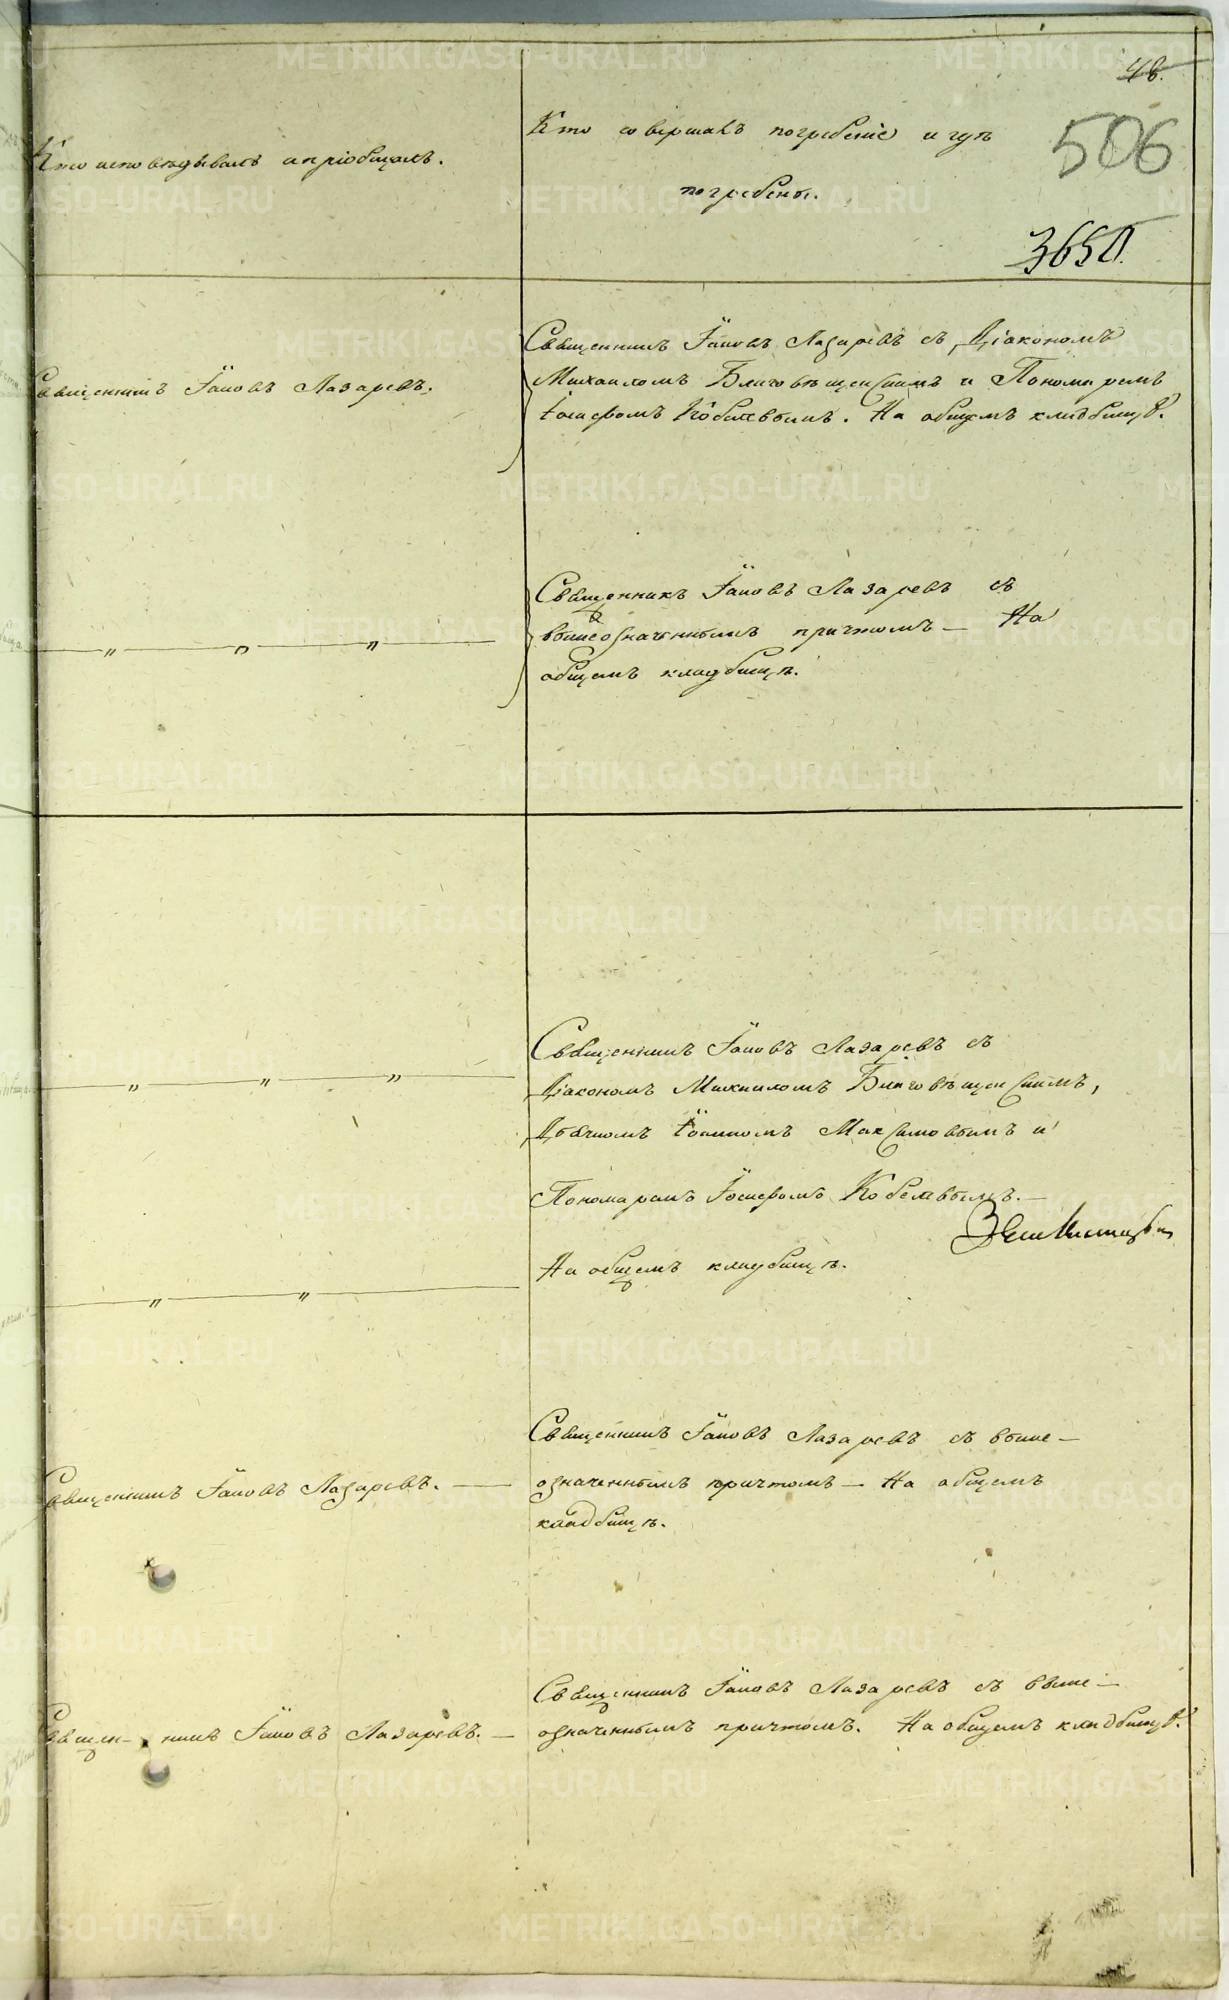 48.
506
365
Кто исповѣдывалъ и пріобщалъ.
Кто совершалъ погребеніе и гдѣ
погребены.
Священникъ Іаковъ Лазаревъ.
Священникъ Іаковъ Лазаревъ съ Діакономъ
Михаиломъ Благовѣщенскимъ и Пономаремъ
Іосифомъ Кобелевымъ. На общемъ кладбищѣ.
— „ — „ — „ —
Священникъ Іаковъ Лазаревъ съ
вышеозначеннымъ причтомъ — На
общемъ кладбищѣ.
— „ — „ — „ —
Священникъ Іаковъ Лазаревъ съ
Діакономъ Михаиломъ Благовѣщенскимъ,
Дьячкомъ Іоанномъ Максимовымъ и
Пономаремъ Іосифомъ Кобелевымъ. —
На общемъ кладбищѣ.
— „ — „ —
Священникъ Іаковъ Лазаревъ. —
Священникъ Іаковъ Лазаревъ съ выше—
означеннымъ причтомъ — На общемъ
кладбищѣ.
Священ— никъ Іаковъ Лазаревъ. —
Священникъ Іаковъ Лазаревъ съ выше—
означеннымъ причтомъ. На общемъ кладбищѣ.
METRIKI.GASO-URAL.RU